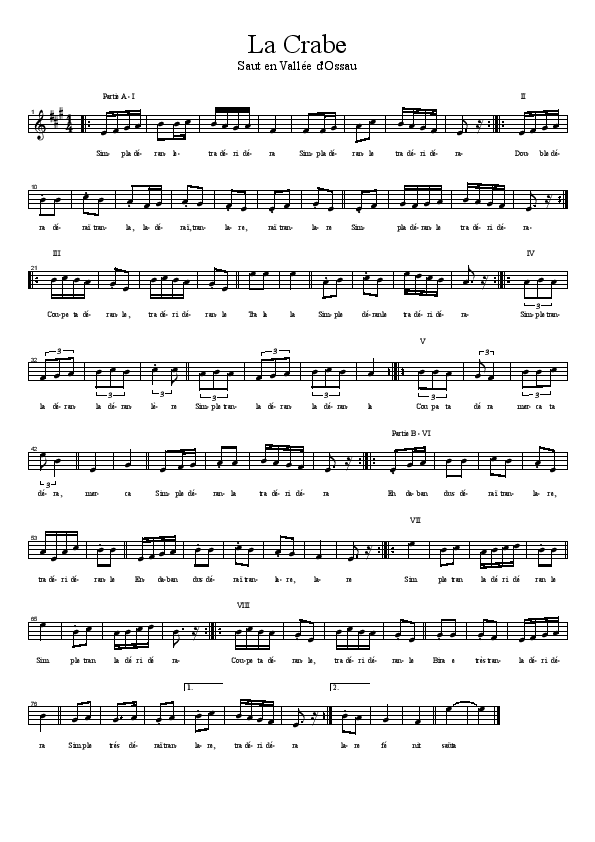 La Crabe
Saut en Vallée d'Ossau
Partie A - I II
1
Sim- pla dé- ran le- tra dé- ri dé- ra Sim- pla dé- ran- le tra dé- ri dé- ra- Dou- ble dé-
10
ra dé- rai tran- la, la- dé- rai, tran- la- re, rai tran- la- re Sim- pla dé- ran- le tra dé- ri dé- ra-
III IV
21
Cou- pe ta dé- ran- le, tra dé- ri dé- ran- le Tra la la Sim- ple déranle tra dé- ri dé- ra- Sim ple tran-
V
32
3 3 3 3 3 3 3 3
la dé- ran- la dé- ran- lè- re Sim- ple tran- la dé- ran- la dé- ran- la Cou pa ta dé ra mer ca ta
Partie B - VI
42
3
dé- ra, mer- ca Sim- ple dé- ran- la tra dé- ri dé- ra Eh da- ban dos dé- rai tran- la- re,
VII
53
tra dé- ri dé- ran- le En- da- ban dos dé- rai tran- la- re, la- re Sim ple tran la dé ri dé ran le
VIII
65
Sim ple tran la dé ri dé ra- Cou- pe ta dé- ran- le, tra dé- ri dé- ran- le Bira e trés tran- la dé ri dé-
1. 2.
76
ra Sim- ple trés dé- rai tran- la- re, tra dé- ri dé- ra la- re fé nit